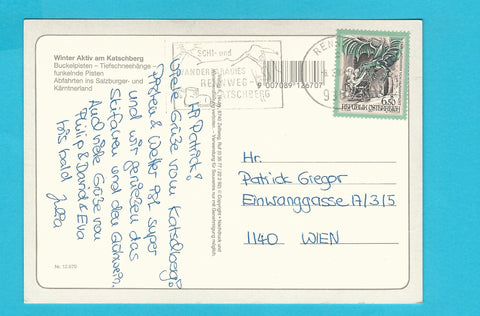 Winter Aktiv am Katschberg
Buckelpisten – Tiefschneehänge –
funkelnde Pisten
Abfahrten ins Salzburger- und
Kärntnerland
Hi Patrick!
Viele Grüße vom Katschberg!
Pisten & Wetter ist super
und wir genießen das
Skifahren und den Glühwein.
Auch viele Grüße von
Philip & David & Eva
bis bald
Julia
Nr. 12.670
SCHI- und
WANDERPARADIES
RENNWEG -
KATSCHBERG
9 007089 126707
REN
9
6.50
REPUBLIK ÖSTERREICH
Hr.
Patrick Gregor
Einwanggasse 17/3/5
1140 WIEN